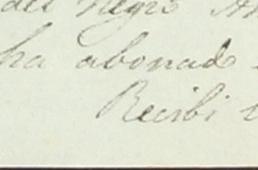 del Negro
ha abonado
Recibi